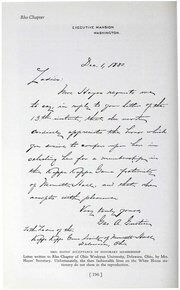 Rho Chapter
EXECUTIVE MANSION
WASHINGTON.
Dec. 1, 1880.
Ladies:
Mrs Hayes requests me
to say, in reply to your letter of the
13th instant, that she most
appreciates the honor which
you desire to confer upon her in
electing her to a membership in
the Kappa Kappa Gamma fraternity
of Monnett Hall, and that she
accepts with pleasure.
Very truly yours,
To the
Kappa Kappa Gamma Society of Monnett Hall,
Delaware, Ohio
MRS. HAYES' ACCEPTANCE OF HONORARY MEMBERSHIP
Letter written to Rho Chapter of Ohio Wesleyan University, Delaware, Ohio, by Mrs.
Hayes' Secretary. Unfortunately, the then fashionable lines on the White House sta-
tionery do not show in the reproduction.
[196]